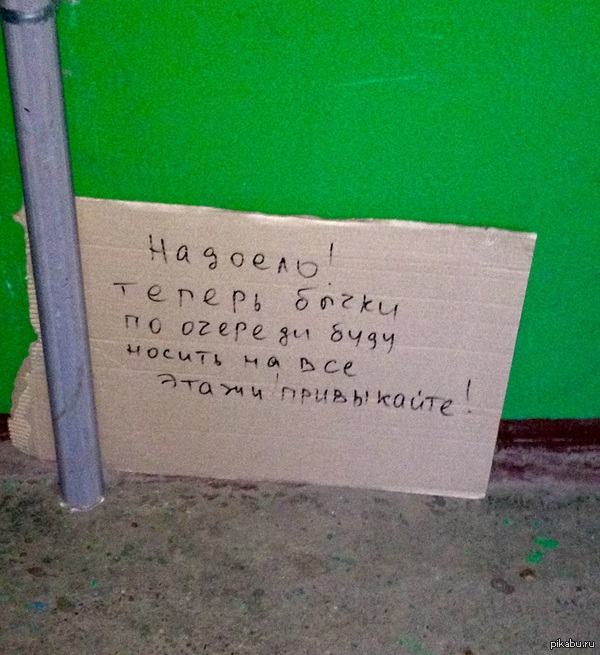 Надоело!
теперь бычки
по очереди буду
носить на все
этажи! привыкайте!
pikabu.ru